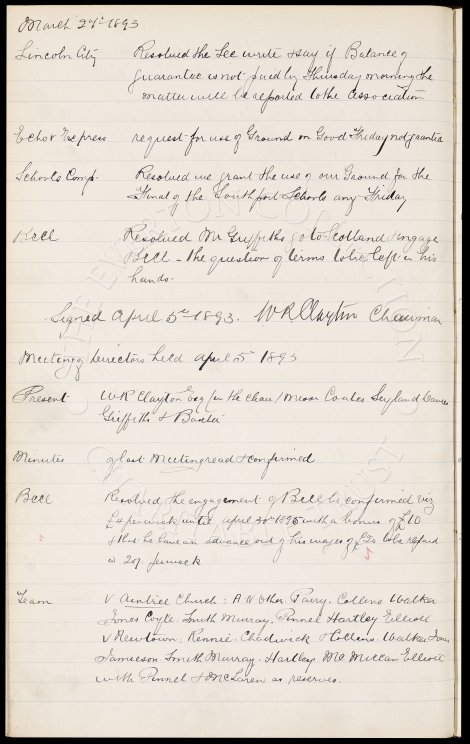 March 29th 1893
Lincoln City Resolved the Sec write & say if Balance of
guarantee is not paid by Thursday morning the
matter will be reported to the Association
Echo & Express request for use of Ground on Good Friday not granted
Schools Comp. Resolved we grant the use of our Ground for the
Final of the Southport Schools any Friday
Bell Resolved Mr Griffiths go to Scotland & engage
Bell - the question of terms to be left in his
hands.
Signed April 5th 1893. W R Clayton Chairman
Meeting of Directors held April 5th 1893
Present W R Clayton Esq (in the chair) Messrs Coates Leyland Davies
Griffiths & Baxter
Minutes of last Meeting read & confirmed
Bell Resolved the engagement of Bell be confirmed viz
£4 per week until April 30th 1895 with a bonus of £10
& that he have an advance out of his wages of £20 to be repaid
@ 20/ per week
Team v Aintree Church: A N Other Parry. Collins Walker
Jones Coyle. Smith Murray. Pinnel Hartley Elliott
v Newtown. Rennie. Chadwick & Collins. Walker Jones
Jamieson Smith Murray. Hartley McMillan Elliott
with Pinnel & McLaren as reserves.
THE EVERTON COLLECTION
CHARITABLE TRUST